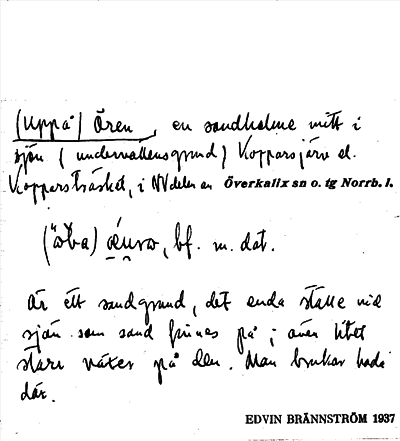 (Uppå) Ören, en sandholme mitt i
sjön (undervattensgrund) Kopparsjärv el.
Kopparsträsket, i NV delen av Överkalix sn o. tg Norrb. l.
bf. m. dat.
är ett sandgrund, det enda ställe vid
sjön som sand finnes på; även litet
starr växer på den. Man brukar bada
där.
EDVIN BRÄNNSTRÖM 1937